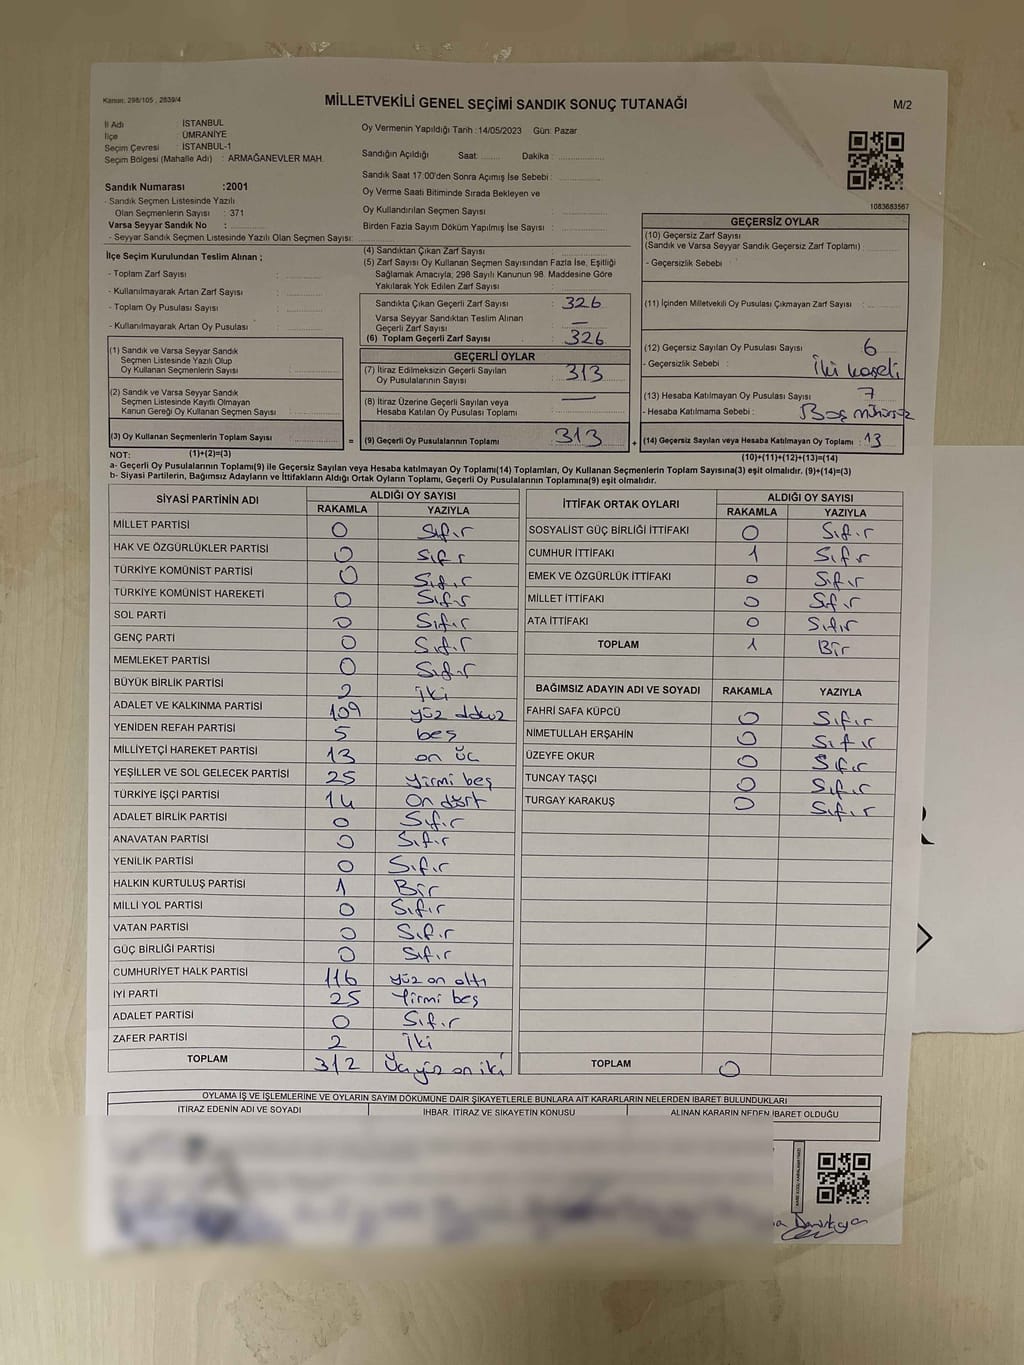 Kanun: 298/105 , 2839/4
MİLLETVEKİLİ GENEL SEÇİMİ SANDIK SONUÇ TUTANAĞI
M/2
İl Adı : İSTANBUL
İlçe : ÜMRANİYE
Seçim Çevresi : İSTANBUL-1
Seçim Bölgesi (Mahalle Adı) : ARMAĞANEVLER MAH.
Sandık Numarası :2001
- Sandık Seçmen Listesinde Yazılı
Olan Seçmenlerin Sayısı : 371
Varsa Seyyar Sandık No :
- Seyyar Sandık Seçmen Listesinde Yazılı Olan Seçmen Sayısı:
Oy Vermenin Yapıldığı Tarih : 14/05/2023 Gün: Pazar
Sandığın Açıldığı Saat: ...... Dakika : ..................
Sandık Saat 17:00'den Sonra Açımış İse Sebebi :
Oy Verme Saati Bitiminde Sırada Bekleyen ve
Oy Kullandırılan Seçmen Sayısı :
Birden Fazla Sayım Döküm Yapılmış İse Sayısı :
1083683567
İlçe Seçim Kurulundan Teslim Alınan ;
- Toplam Zarf Sayısı :
- Kullanılmayarak Artan Zarf Sayısı :
- Toplam Oy Pusulası Sayısı :
- Kullanılmayarak Artan Oy Pusulası :
(1) Sandık ve Varsa Seyyar Sandık
Seçmen Listesinde Yazılı Olup
Oy Kullanan Seçmenlerin Sayısı :
(2) Sandık ve Varsa Seyyar Sandık
Seçmen Listesinde Kayıtlı Olmayan
Kanun Gereği Oy Kullanan Seçmen Sayısı :
(3) Oy Kullanan Seçmenlerin Toplam Sayısı :
(1)+(2)=(3)
(4) Sandıktan Çıkan Zarf Sayısı :
(5) Zarf Sayısı Oy Kullanan Seçmen Sayısından Fazla İse, Eşitliği
Sağlamak Amacıyla; 298 Sayılı Kanunun 98. Maddesine Göre
Yakılarak Yok Edilen Zarf Sayısı :
Sandıkta Çıkan Geçerli Zarf Sayısı : 326
Varsa Seyyar Sandıktan Teslim Alınan
Geçerli Zarf Sayısı : —
(6) Toplam Geçerli Zarf Sayısı : 326
GEÇERLİ OYLAR
(7) İtiraz Edilmeksizin Geçerli Sayılan
Oy Pusulalarının Sayısı : 313
(8) İtiraz Üzerine Geçerli Sayılan veya
Hesaba Katılan Oy Pusulası Toplamı : —
= (9) Geçerli Oy Pusulalarının Toplamı : 313
GEÇERSİZ OYLAR
(10) Geçersiz Zarf Sayısı
(Sandık ve Varsa Seyyar Sandık Geçersiz Zarf Toplamı) :
- Geçersizlik Sebebi :
(11) İçinden Milletvekili Oy Pusulası Çıkmayan Zarf Sayısı :
(12) Geçersiz Sayılan Oy Pusulası Sayısı : 6
- Geçersizlik Sebebi : İki kaşeli
(13) Hesaba Katılmayan Oy Pusulası Sayısı : 7
- Hesaba Katılmama Sebebi : Boş mühürsüz
+ (14) Geçersiz Sayılan veya Hesaba Katılmayan Oy Toplamı : 13
(10)+(11)+(12)+(13)=(14)
NOT:
a- Geçerli Oy Pusulalarının Toplamı(9) ile Geçersiz Sayılan veya Hesaba katılmayan Oy Toplamı(14) Toplamları, Oy Kullanan Seçmenlerin Toplam Sayısına(3) eşit olmalıdır. (9)+(14)=(3)
b- Siyasi Partilerin, Bağımsız Adayların ve İttifakların Aldığı Ortak Oyların Toplamı, Geçerli Oy Pusulalarının Toplamına(9) eşit olmalıdır.
SİYASİ PARTİNİN ADI ALDIĞI OY SAYISI
RAKAMLA YAZIYLA
MİLLET PARTİSİ 0 Sıfır
HAK VE ÖZGÜRLÜKLER PARTİSİ 0 Sıfır
TÜRKİYE KOMÜNİST PARTİSİ 0 Sıfır
TÜRKİYE KOMÜNİST HAREKETİ 0 Sıfır
SOL PARTİ 0 Sıfır
GENÇ PARTİ 0 Sıfır
MEMLEKET PARTİSİ 0 Sıfır
BÜYÜK BİRLİK PARTİSİ 2 iki
ADALET VE KALKINMA PARTİSİ 109 yüz dokuz
YENİDEN REFAH PARTİSİ 5 beş
MİLLİYETÇİ HAREKET PARTİSİ 13 on üç
YEŞİLLER VE SOL GELECEK PARTİSİ 25 yirmi beş
TÜRKİYE İŞÇİ PARTİSİ 14 on dört
ADALET BİRLİK PARTİSİ 0 Sıfır
ANAVATAN PARTİSİ 0 Sıfır
YENİLİK PARTİSİ 0 Sıfır
HALKIN KURTULUŞ PARTİSİ 1 Bir
MİLLİ YOL PARTİSİ 0 Sıfır
VATAN PARTİSİ 0 Sıfır
GÜÇ BİRLİĞİ PARTİSİ 0 Sıfır
CUMHURİYET HALK PARTİSİ 116 yüz on altı
İYİ PARTİ 25 Yirmi beş
ADALET PARTİSİ 0 Sıfır
ZAFER PARTİSİ 2 İki
TOPLAM 312 Üçyüz on iki
İTTİFAK ORTAK OYLARI ALDIĞI OY SAYISI
RAKAMLA YAZIYLA
SOSYALİST GÜÇ BİRLİĞİ İTTİFAKI 0 Sıfır
CUMHUR İTTİFAKI 1 Sıfır
EMEK VE ÖZGÜRLÜK İTTİFAKI 0 Sıfır
MİLLET İTTİFAKI 0 Sıfır
ATA İTTİFAKI 0 Sıfır
TOPLAM 1 Bir
BAĞIMSIZ ADAYIN ADI VE SOYADI RAKAMLA YAZIYLA
FAHRİ SAFA KÜPCÜ 0 Sıfır
NİMETULLAH ERŞAHİN 0 Sıfır
ÜZEYFE OKUR 0 Sıfır
TUNCAY TAŞÇI 0 Sıfır
TURGAY KARAKUŞ 0 Sıfır
TOPLAM 0
OYLAMA İŞ VE İŞLEMLERİNE VE OYLARIN SAYIM DÖKÜMÜNE DAİR ŞİKAYETLERLE BUNLARA AİT KARARLARIN NELERDEN İBARET BULUNDUKLARI
İTİRAZ EDENİN ADI VE SOYADI İHBAR, İTİRAZ VE ŞİKAYETİN KONUSU ALINAN KARARIN NEDEN İBARET OLDUĞU